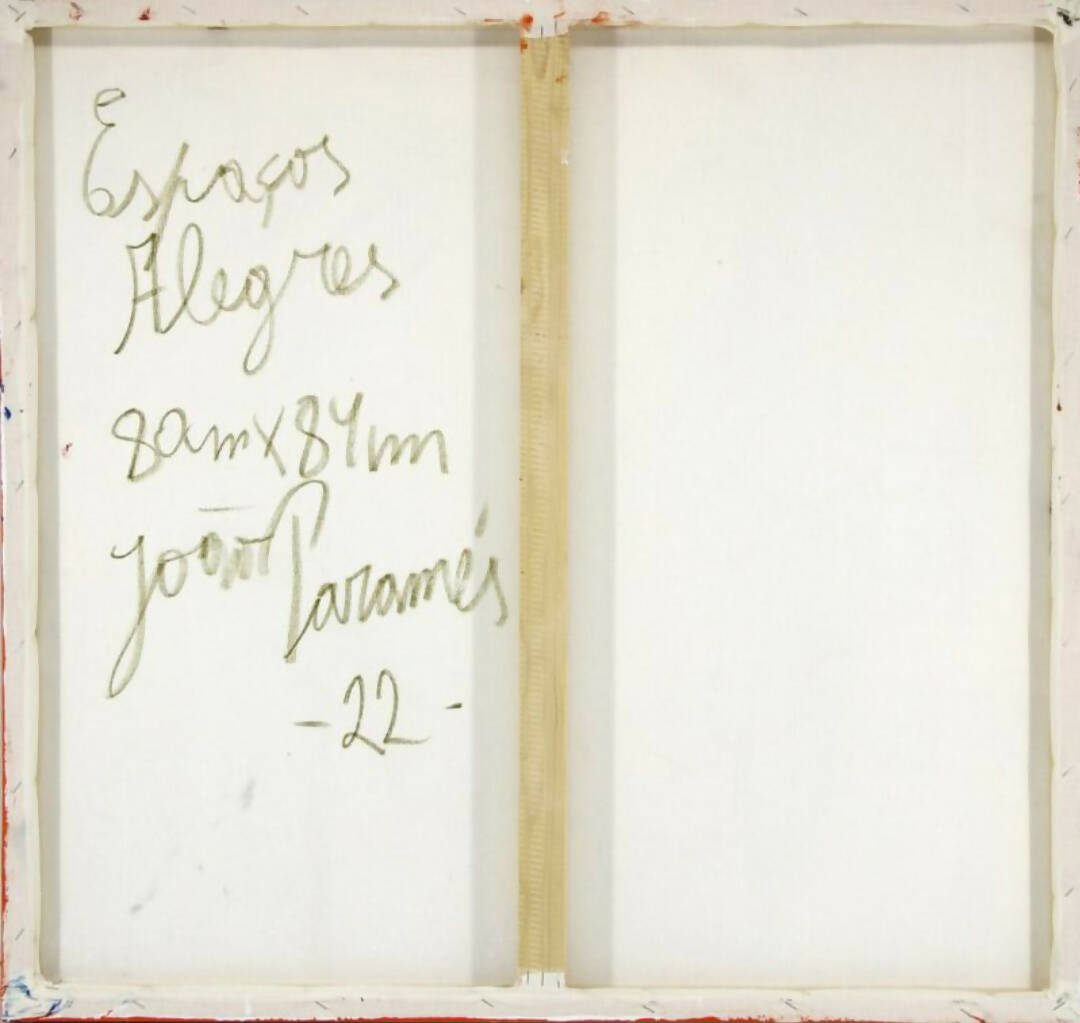 Espaços
Alegres
80cm x 84cm
João Paramés
- 22 -